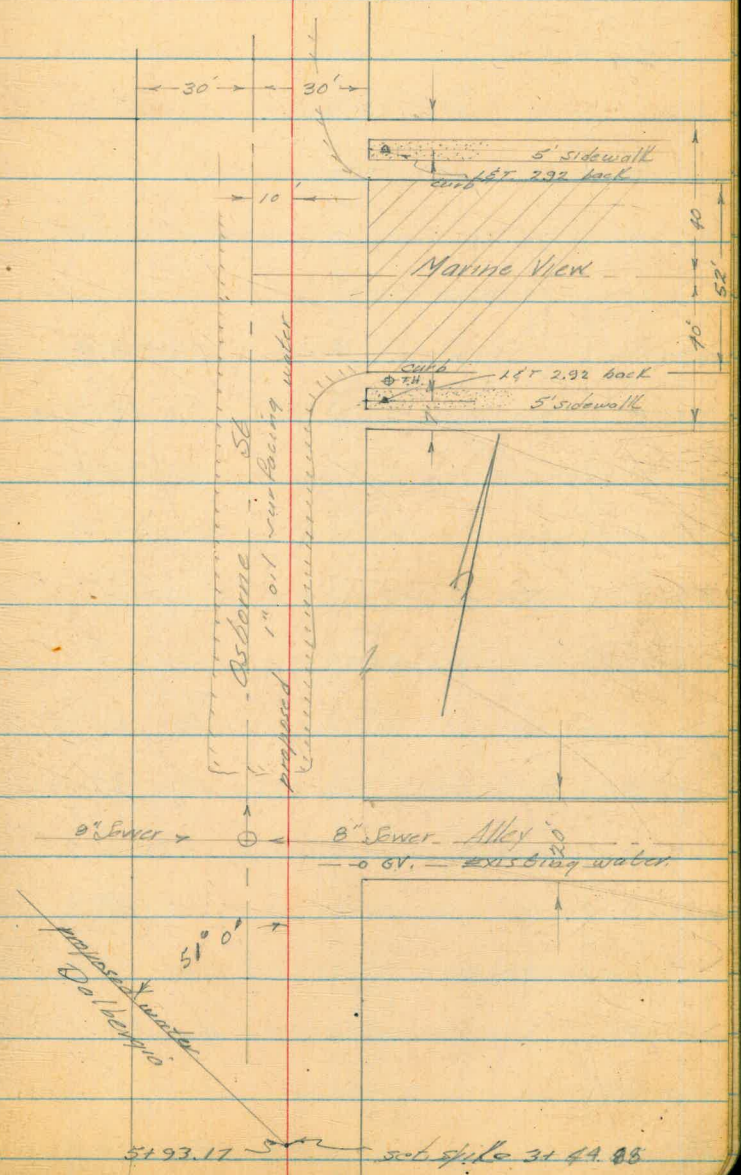 30' 30'
5' sidewalk
L&T. 2.92 back
curb
10'
40
Marine View
52'
40'
curb
T.H.
L&T 2.92 back
5' sidewalk
7'
Osborne St
proposed 1" oil surfacing water
9" Sewer
8" Sewer Alley
20'
GV. Existing water.
51° 0'
proposed water
Dalbergia
5+93.17
set spike 3+44.83